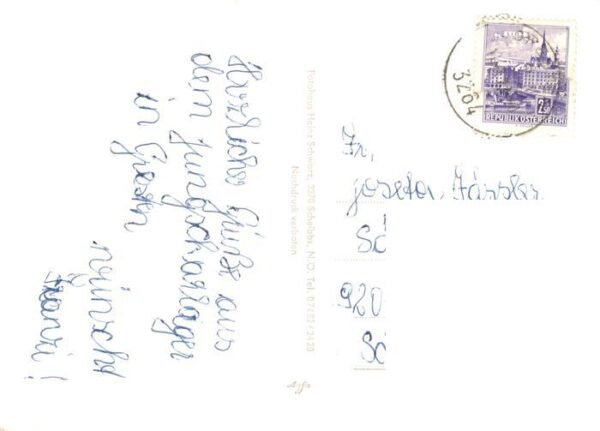 Herzliche Grüße aus
dem Jungscharlager
in Gresten
wünscht
Fotohaus Heinz Schwarz, 3270 Scheibbs, N.Ö. Tel. 07482/2420
Nachdruck verboten
3264
REPUBLIK ÖSTERREICH
Fr,
Josefa
920